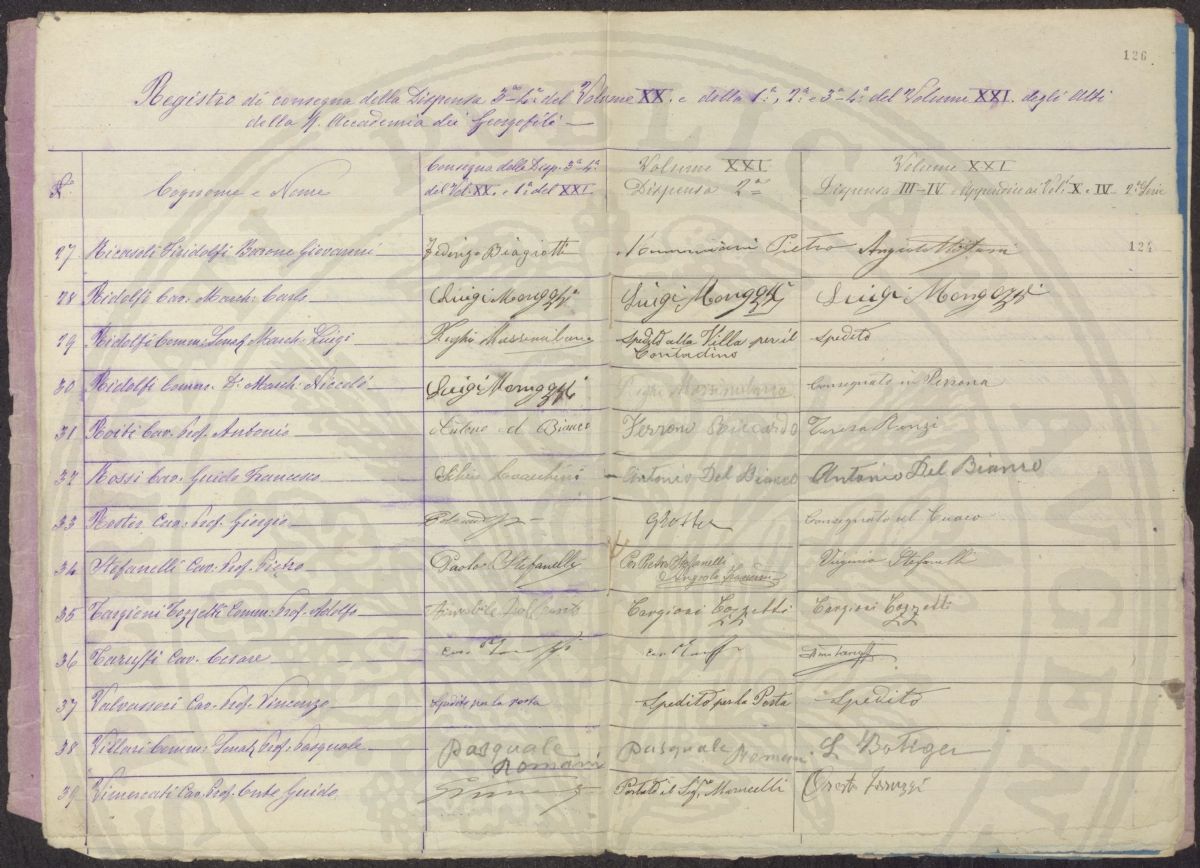 126
Registro di consegna della Dispensa 3ª-4ª del Volume XX. e della 1ª, 2ª e 3ª-4ª del Volume XXI. degli Atti
della R. Accademia dei Georgofili
N.º Cognome e Nome Consegna delle Disp. 3ª-4ª Volume XXI Volume XXI
del Vol. XX. e 1ª del XXI. Dispensa 2ª Dispensa III-IV e Appendice ai Vol. X e IV 2ª Serie
124
27 Ricasoli Firidolfi Barone Giovanni Federigo Biagiotti Pietro Augusto
28 Ridolfi Cav. March. Carlo Luigi Mongozzi Luigi Mongozzi Luigi Mongozzi
29 Ridolfi Comm. Senat. March. Luigi Massimiliano Spedito alla Villa per il Spedito
Contadino
30 Ridolfi Comm. March. Niccolò Luigi Mongozzi Massimiliano Consegnato in Persona
31 Roiti Cav. Prof. Antonio Antonio del Bianco Riccardo Teresa
32 Rossi Cav. Guido Francesco Silvio Antonio Del Bianco Antonio Del Bianco
33 Roster Cav. Prof. Giorgio GRoster Consegnato al Cuoco
34 Stefanelli Cav. Prof. Pietro Paolo Stefanelli Per Pietro Stefanelli Virginia Stefanelli
Angiolo
35 Targioni Tozzetti Comm. Prof. Adolfo Targioni Tozzetti Targioni Tozzetti
36 Taruffi Cav. Cesare
37 Valvassori Cav. Prof. Vincenzo Spedito per la posta Spedito per la Posta Spedito
38 Villari Comm. Senat. Prof. Pasquale Pasquale Pasquale Romani L Bottger
Romani
39 Vimercati Cav. Prof. Conte Guido Portato il Sig. Moricelli Oreste